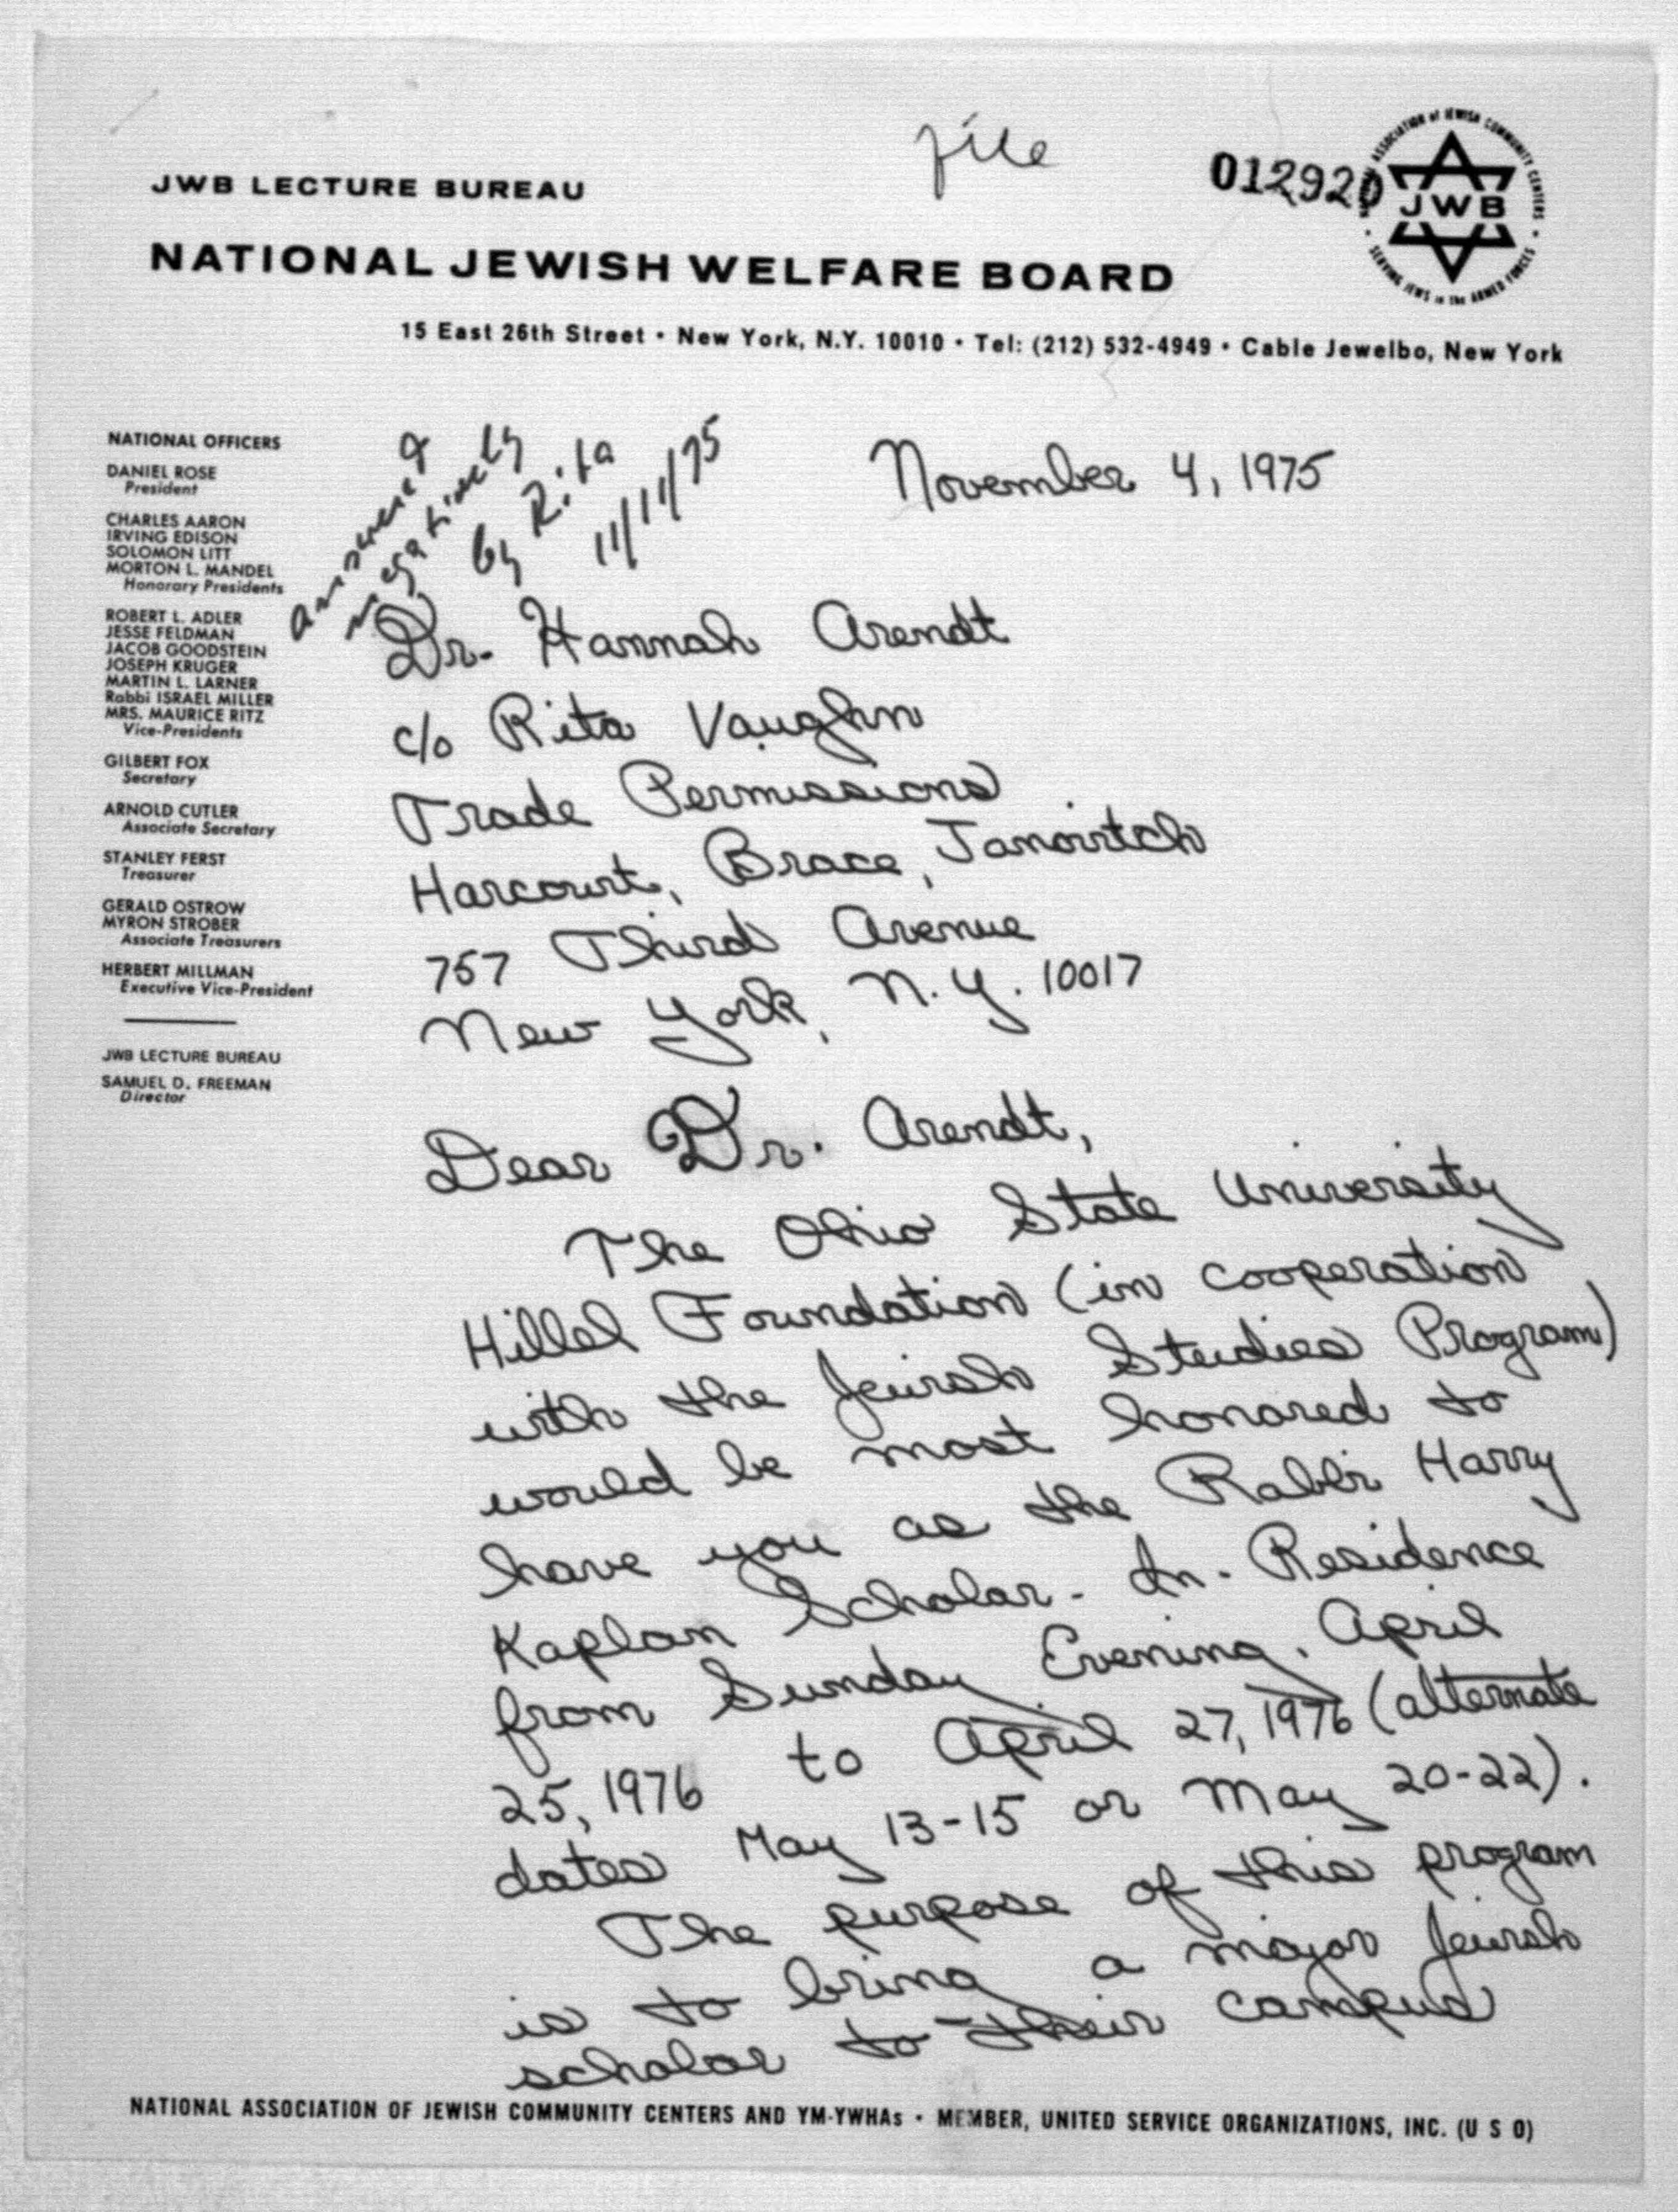 file
012920
JWB LECTURE BUREAU
NATIONAL JEWISH WELFARE BOARD
ASSOCIATION of JEWISH COMMUNITY CENTERS
JWB
SERVING JEWS in the ARMED FORCES
15 East 26th Street • New York, N.Y. 10010 • Tel: (212) 532-4949 • Cable Jewelbo, New York
NATIONAL OFFICERS
DANIEL ROSE
President
CHARLES AARON
IRVING EDISON
SOLOMON LITT
MORTON L. MANDEL
Honorary Presidents
ROBERT L. ADLER
JESSE FELDMAN
JACOB GOODSTEIN
JOSEPH KRUGER
MARTIN L. LARNER
Rabbi ISRAEL MILLER
MRS. MAURICE RITZ
Vice-Presidents
GILBERT FOX
Secretary
ARNOLD CUTLER
Associate Secretary
STANLEY FERST
Treasurer
GERALD OSTROW
MYRON STROBER
Associate Treasurers
HERBERT MILLMAN
Executive Vice-President
JWB LECTURE BUREAU
SAMUEL D. FREEMAN
Director
answered
negatively
by Rita
11/11/75
November 4, 1975
Dr. Hannah Arendt
c/o Rita Vaughn
Trade Permissions
Harcourt, Brace, Janovitch
757 Third Avenue
New York, N.Y. 10017
Dear Dr. Arendt,
The Ohio State University
Hillel Foundation (in cooperation
with the Jewish Studies Program)
would be most honored to
have you as the Rabbi Harry
Kaplan Scholar-In-Residence
from Sunday Evening, April
25, 1976 to April 27, 1976 (alternate
dates May 13-15 or May 20-22).
The purpose of this program
is to bring a major Jewish
scholar to their campus
NATIONAL ASSOCIATION OF JEWISH COMMUNITY CENTERS AND YM-YWHAs • MEMBER, UNITED SERVICE ORGANIZATIONS, INC. (U S O)